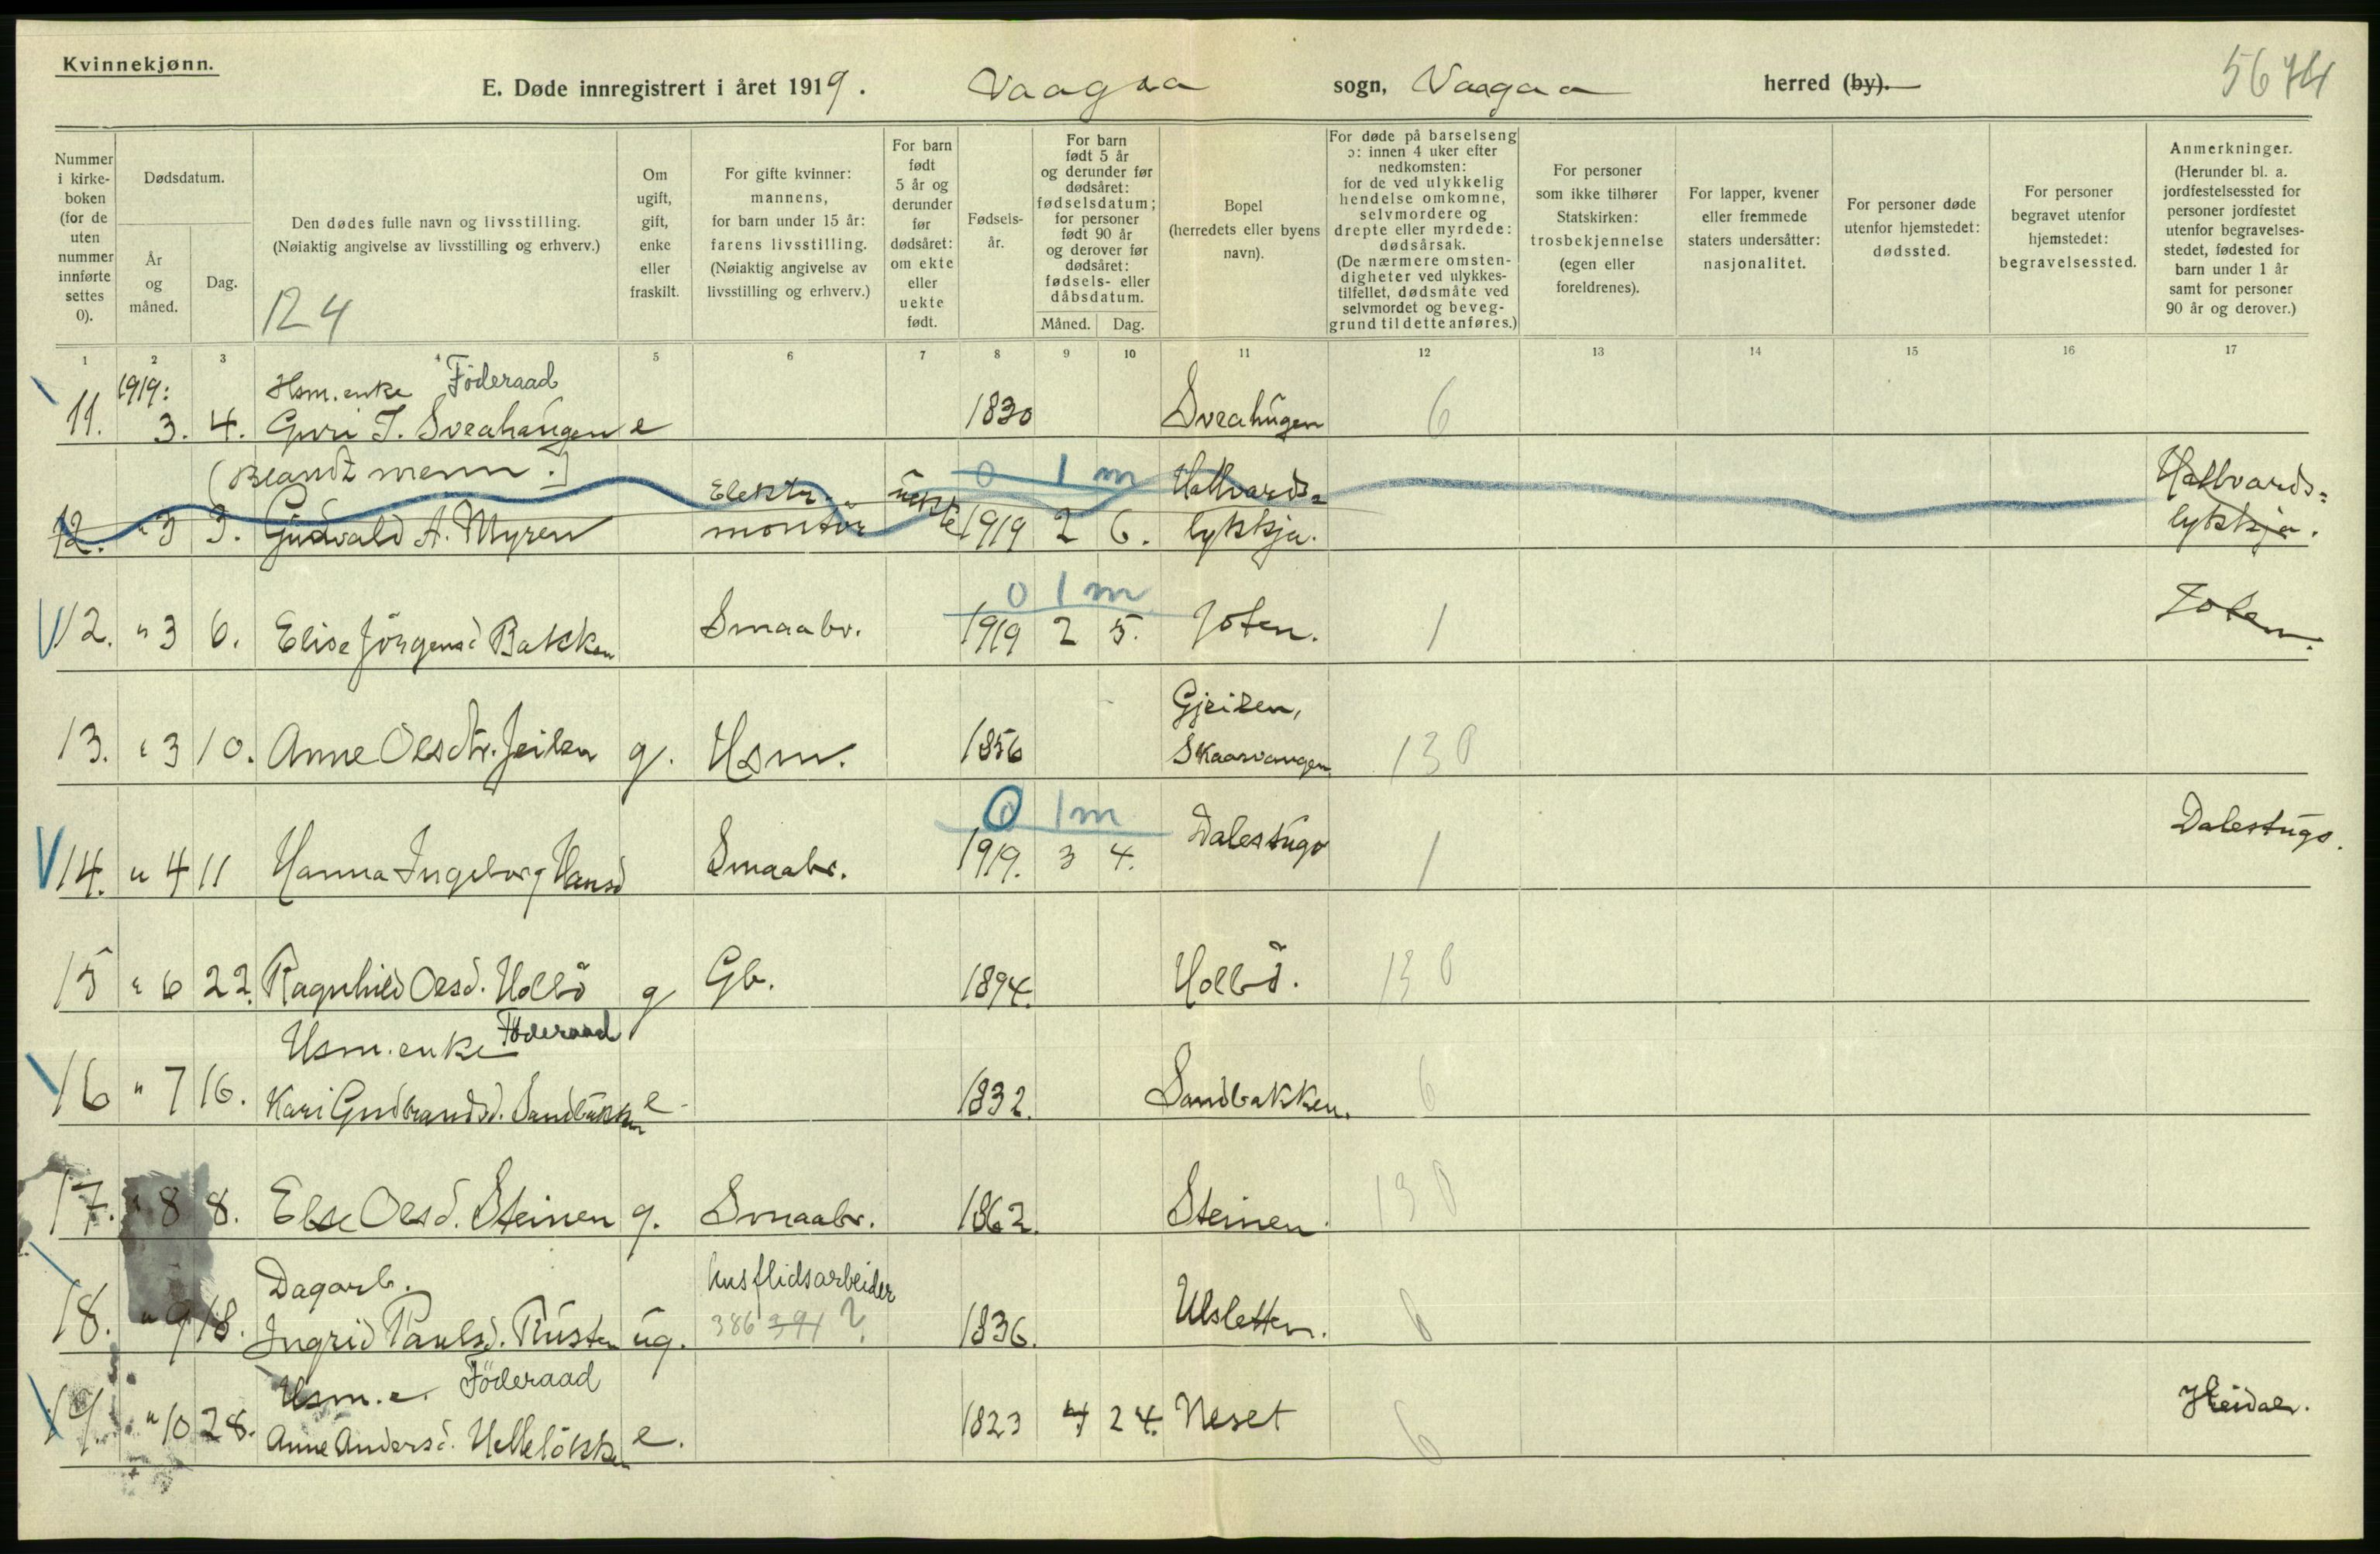 Kvinnekjønn.
E. Døde innregistrert i året 1919. Vaagaa sogn, Vaagaa herred (by).
5674
Nummer i kirkeboken (for de uten nummer innførte settes 0).
Dødsdatum.
År og måned.
Dag.
Den dødes fulle navn og livsstilling.
(Nøiaktig angivelse av livsstilling og erhverv.)
124
Om ugift, gift, enke eller fraskilt.
For gifte kvinner: mannens, for barn under 15 år: farens livsstilling. (Nøiaktig angivelse av livsstilling og erhverv.)
For barn født 5 år og derunder før dødsåret: om ekte eller uekte født.
Fødsels-år.
For barn født 5 år og derunder før dødsåret: fødselsdatum; for personer født 90 år og derover før dødsåret: fødsels- eller dåbsdatum.
Måned. Dag.
Bopel (herredets eller byens navn).
For døde på barselseng ɔ: innen 4 uker efter nedkomsten: for de ved ulykkelig hendelse omkomne, selvmordere og drepte eller myrdede: dødsårsak. (De nærmere omstendigheter ved ulykkestilfellet, dødsmåte ved selvmordet og beveggrund til dette anføres.)
For personer som ikke tilhører Statskirken: trosbekjennelse (egen eller foreldrenes).
For lapper, kvener eller fremmede staters undersåtter: nasjonalitet.
For personer døde utenfor hjemstedet: dødssted.
For personer begravet utenfor hjemstedet: begravelsessted.
Anmerkninger. (Herunder bl. a. jordfestelsessted for personer jordfestet utenfor begravelsesstedet, fødested for barn under 1 år samt for personer 90 år og derover.)
1 2 3 4 5 6 7 8 9 10 11 12 13 14 15 16 17
1919: Hsm. enke Föderaad
11. 3. 4. Guri T. Sveahaugen e 1830 Sveahugen 6
(Blandt menn.) Elektr. uekte 0 1 m Hallvards= Hallvards=
12. " 3 3. Gudvald A. Myren montör 1919 2 6. lykkja. lykkja.
0 1 m
12. " 3 6. Elise Jörgensd Bakken Smaabr. 1919 2 5. Joten. 1 Joten.
Gjeilen,
13. " 3 10. Anne Olsdtr. Jeilen g. Hsm. 1856 Skaarvangen 130
0 1 m
14. " 4 11 Hanna Ingeborg Hansd Smaabr. 1919. 3 4. Dalestugo 1 Dalestugo.
15 " 6 22. Ragnhild Olsd. Holbö g Gb. 1894. Holbö. 130
Hsm. enke Föderaad
16 " 7 16. Kari Gudbrandsd. Sandbakken e 1832. Sandbakken. 6
17. " 8 8. Else Olsd. Steinen g. Smaabr. 1862. Steinen. 130
Dagarb. husflidsarbeider
18. " 9 18. Ingrid Paulsd. Rusten ug. 386 391 ? 1836. Ulsletten. 6
Hsm. e. Föderaad
19. " 10 28. Anne Andersd. Helleløkken e. 1823 4 24. Neset 6 Heidal.